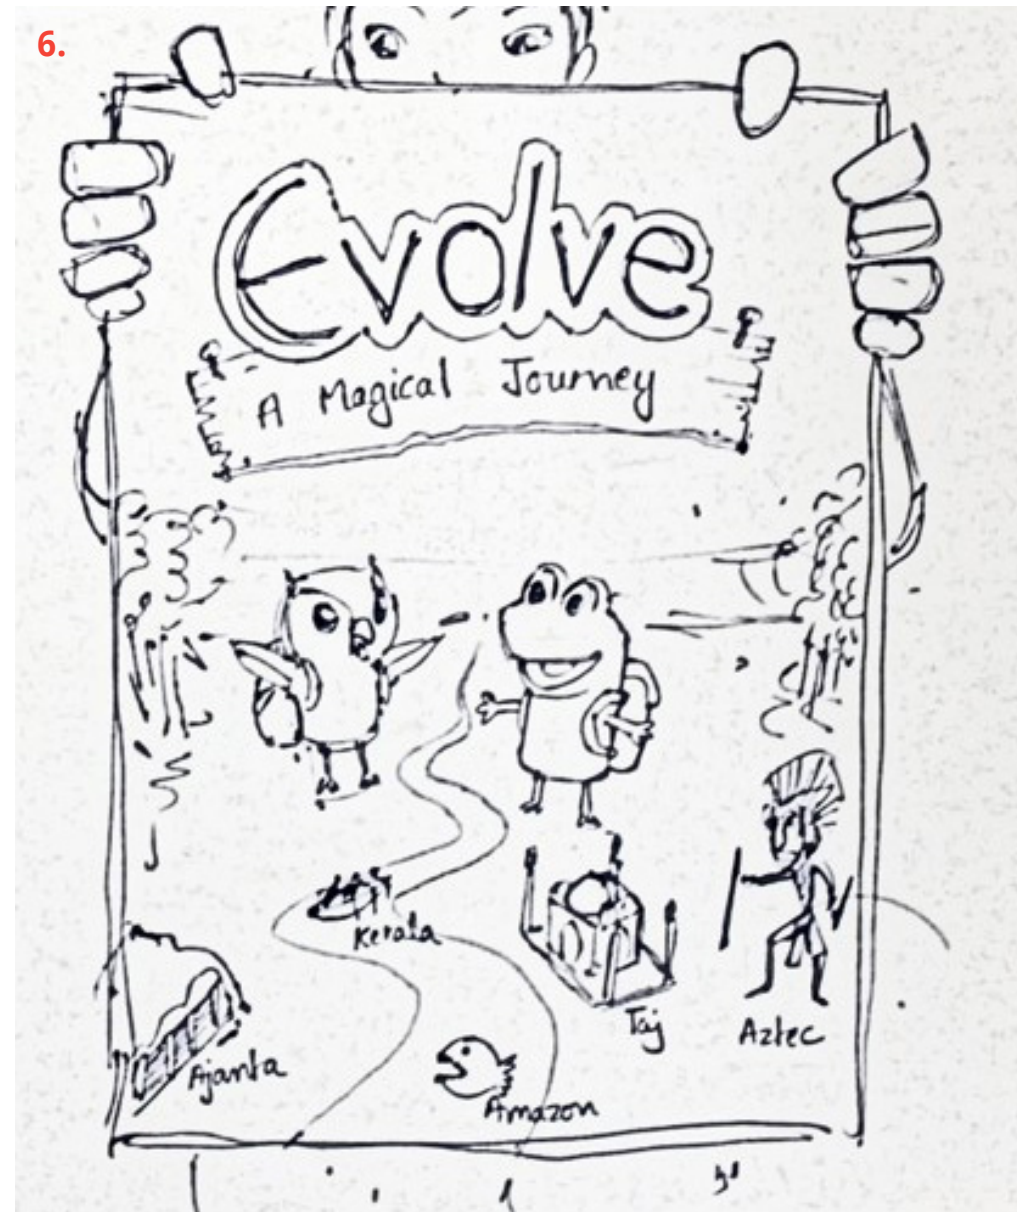 6.
Evolve
A Magical Journey
Kerala
Taj
Aztec
Ajanta
Amazon